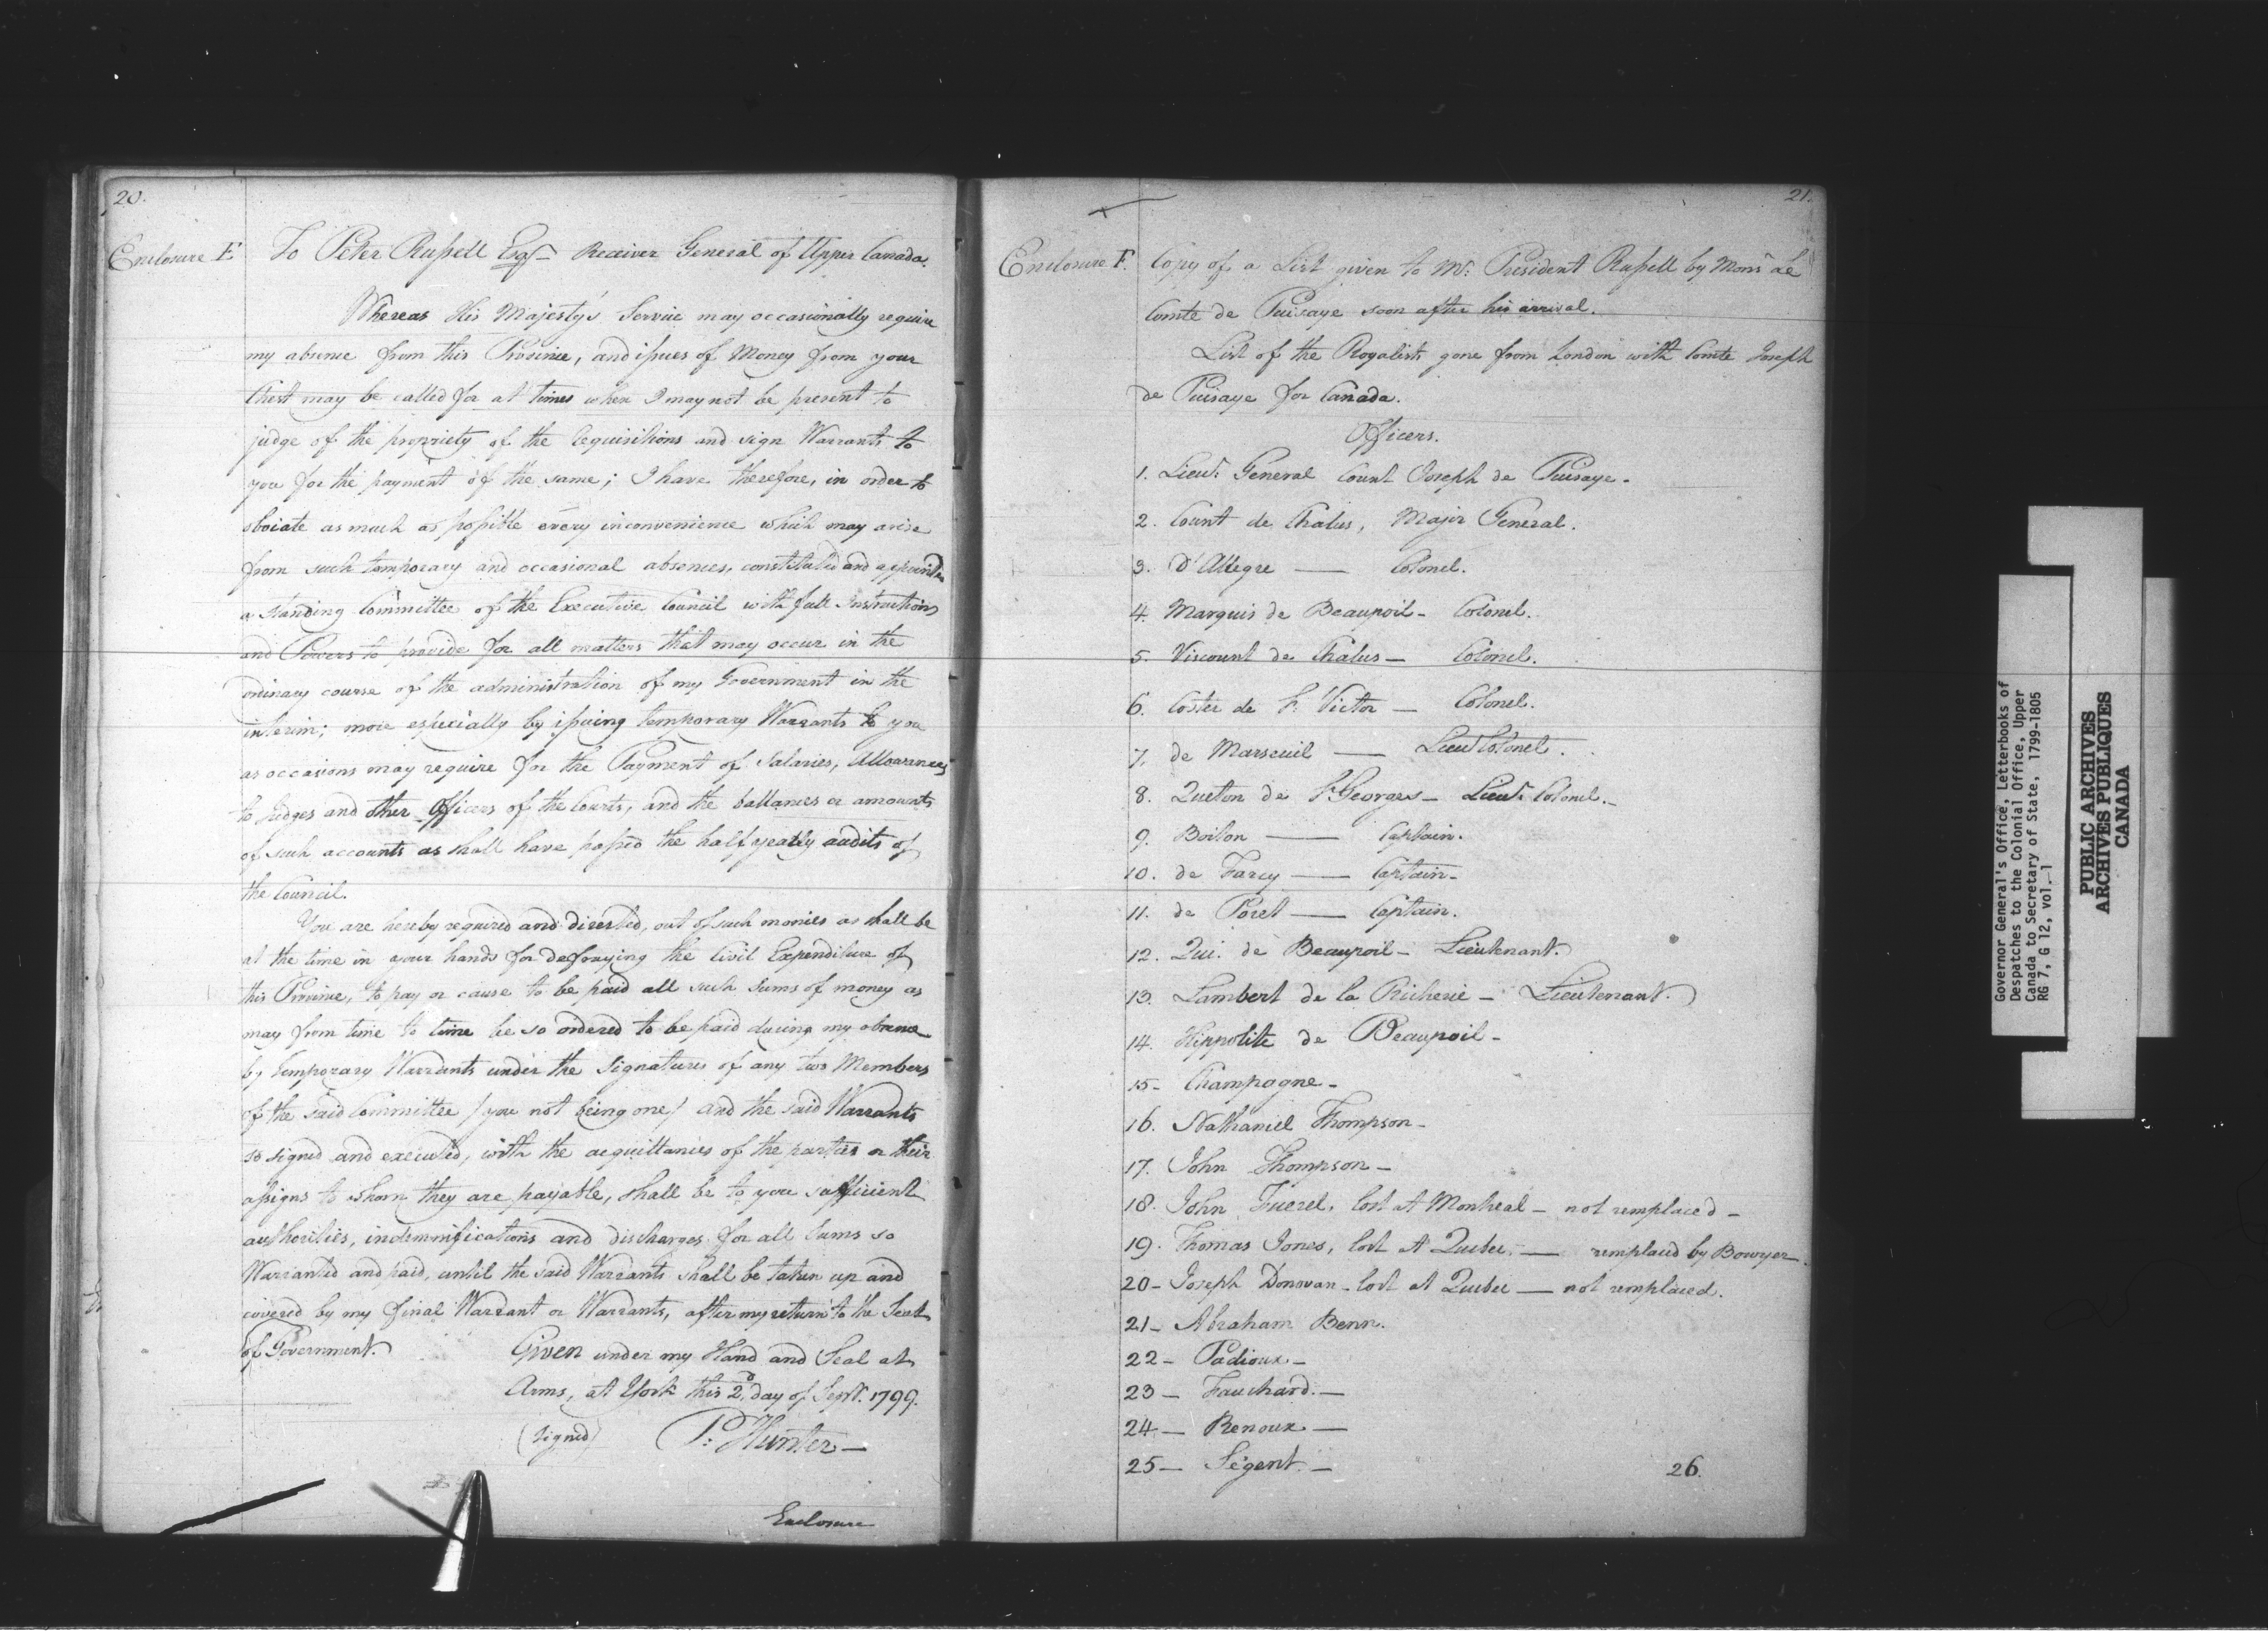 20.
Enclosure E
To Peter Russell Esqr. Receiver General of Upper Canada.
Whereas His Majesty's Service may occasionally require
my absence from this Province, and issues of Money from your
Chest may be called for at times when I may not be present to
judge of the propriety of the requisitions and sign Warrants to
you for the payment of the same; I have therefore, in order to
obviate as much as possible every inconvenience which may arise
from such temporary and occasional absences, constituted and appointed
a standing Committee of the Executive Council with full Instructions
and Powers to provide for all matters that may occur in the
ordinary course of the administration of my Government in the
interim; more especially by issuing temporary Warrants to you
as occasions may require for the Payment of Salaries, Allowances
to Judges and other Officers of the Courts, and the ballances or amounts
of such accounts as shall have passed the half yearly audits of
the Council.
You are hereby required and directed, out of such monies as shall be
at the time in your hands for defraying the Civil Expenditure of
this Province, to pay or cause to be paid all such Sums of money as
may from time to time be so ordered to be paid during my absence
by temporary Warrants under the Signatures of any two Members
of the said Committee / you not being one / and the said Warrants
so signed and executed, with the acquittances of the parties or their
assigns to whom they are payable, shall be to you sufficient
authorities, indemnifications and discharges for all Sums so
Warranted and paid, until the said Warrants shall be taken up and
covered by my final Warrant or Warrants, after my return to the Seat
of Government.
Given under my Hand and Seal at
Arms, at York this 2d. day of Septr. 1799.
(Signed) P: Hunter
Enclosure
21.
Enclosure F.
Copy of a List given to Mr. President Russell by Monsr. le
Comte de Puisaye soon after his arrival.
List of the Royalists gone from London with Comte Joseph
de Puisaye for Canada.
Officers.
1. Lieut. General Count Joseph de Puisaye.
2. Count de Chalus, Major General.
3. D'Allegre — Colonel.
4. Marquis de Beaupoil - Colonel.
5. Viscount de Chalus — Colonel.
6. Coster de St. Victor — Colonel.
7. de Marseuil — Lieut Colonel.
8. Queton de St Georges - Lieut. Colonel.
9. Boiton — Captain.
10. de Farcy — Captain-
11. de Poret — Captain.
12. Qui. de Beaupoil - Lieutenant.
13. Lambert de la Richerie - Lieutenant.
14. Hippolite de Beaupoil -
15- Champagne -
16. Nathaniel Thompson -
17. John Thompson -
18. John Fuerel, lost at Montreal - not remplaced -
19. Thomas Jones, lost at Quebec — remplaced by Bowyer.
20- Joseph Donovan - lost at Quebec — not remplaced.
21- Abraham Benn.
22- Padioux -
23- Fauchard. —
24- Renoux —
25- Segent. —
26.
Governor General's Office, Letterbooks of
Despatches to the Colonial Office, Upper
Canada to Secretary of State, 1799-1805
RG 7, G 12, vol. 1
PUBLIC ARCHIVES
ARCHIVES PUBLIQUES
CANADA